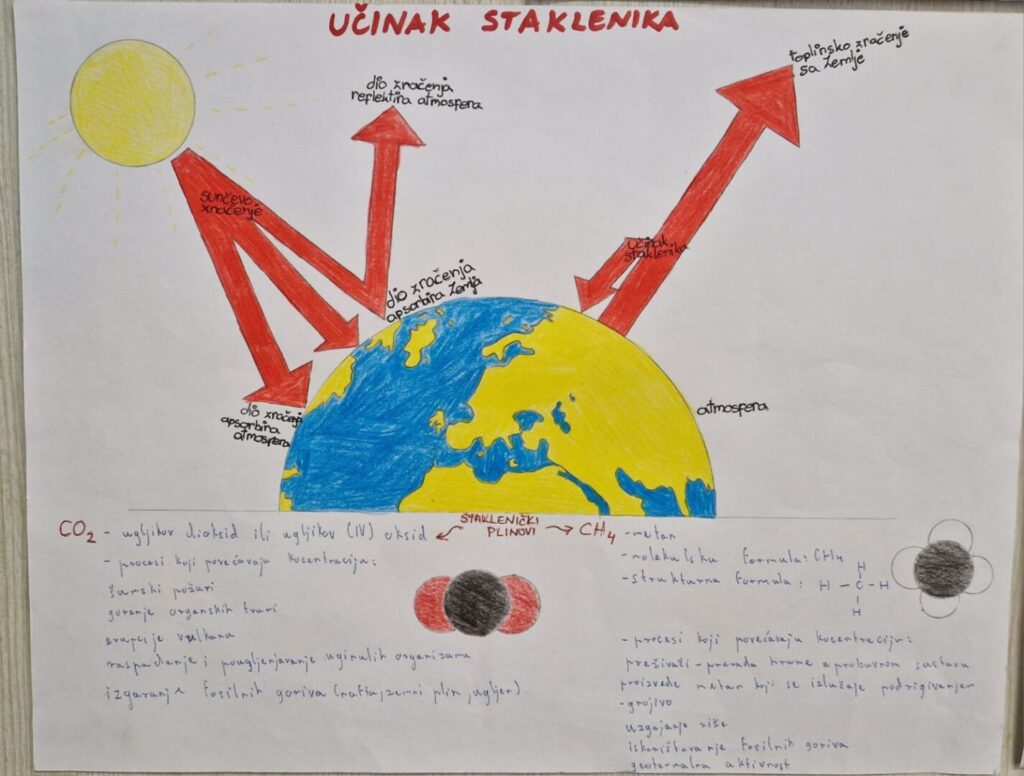 UČINAK STAKLENIKA
dio zračenja
reflektira atmosfera
toplinsko zračenje
sa Zemlje
sunčevo
zračenje
učinak
staklenika
dio zračenja
apsorbira Zemlja
dio zračenja
apsorbira
atmosfera
atmosfera
STAKLENIČKI
PLINOVI
CO2 - ugljikov dioksid ili ugljikov (IV) oksid
- procesi koji povećavaju kocentraciju:
šumski požari
gorenje organskih tvari
erupcije vulkana
raspadanje i pougljenjavanje uginulih organizama
izgaranje fosilnih goriva (nafta, zemni plin, ugljen)
CH4 - metan
- molekulska formula: CH4
- strukturna formula:
H
H - C - H
H
- procesi koji povećavaju kocentraciju:
preživači - prerada hrane u probavnom sustavu
proizvede metan koji se izlučuje podrigivanjem
- gnojivo
uzgajanje riže
iskorištavanje fosilnih goriva
geotermalna aktivnost